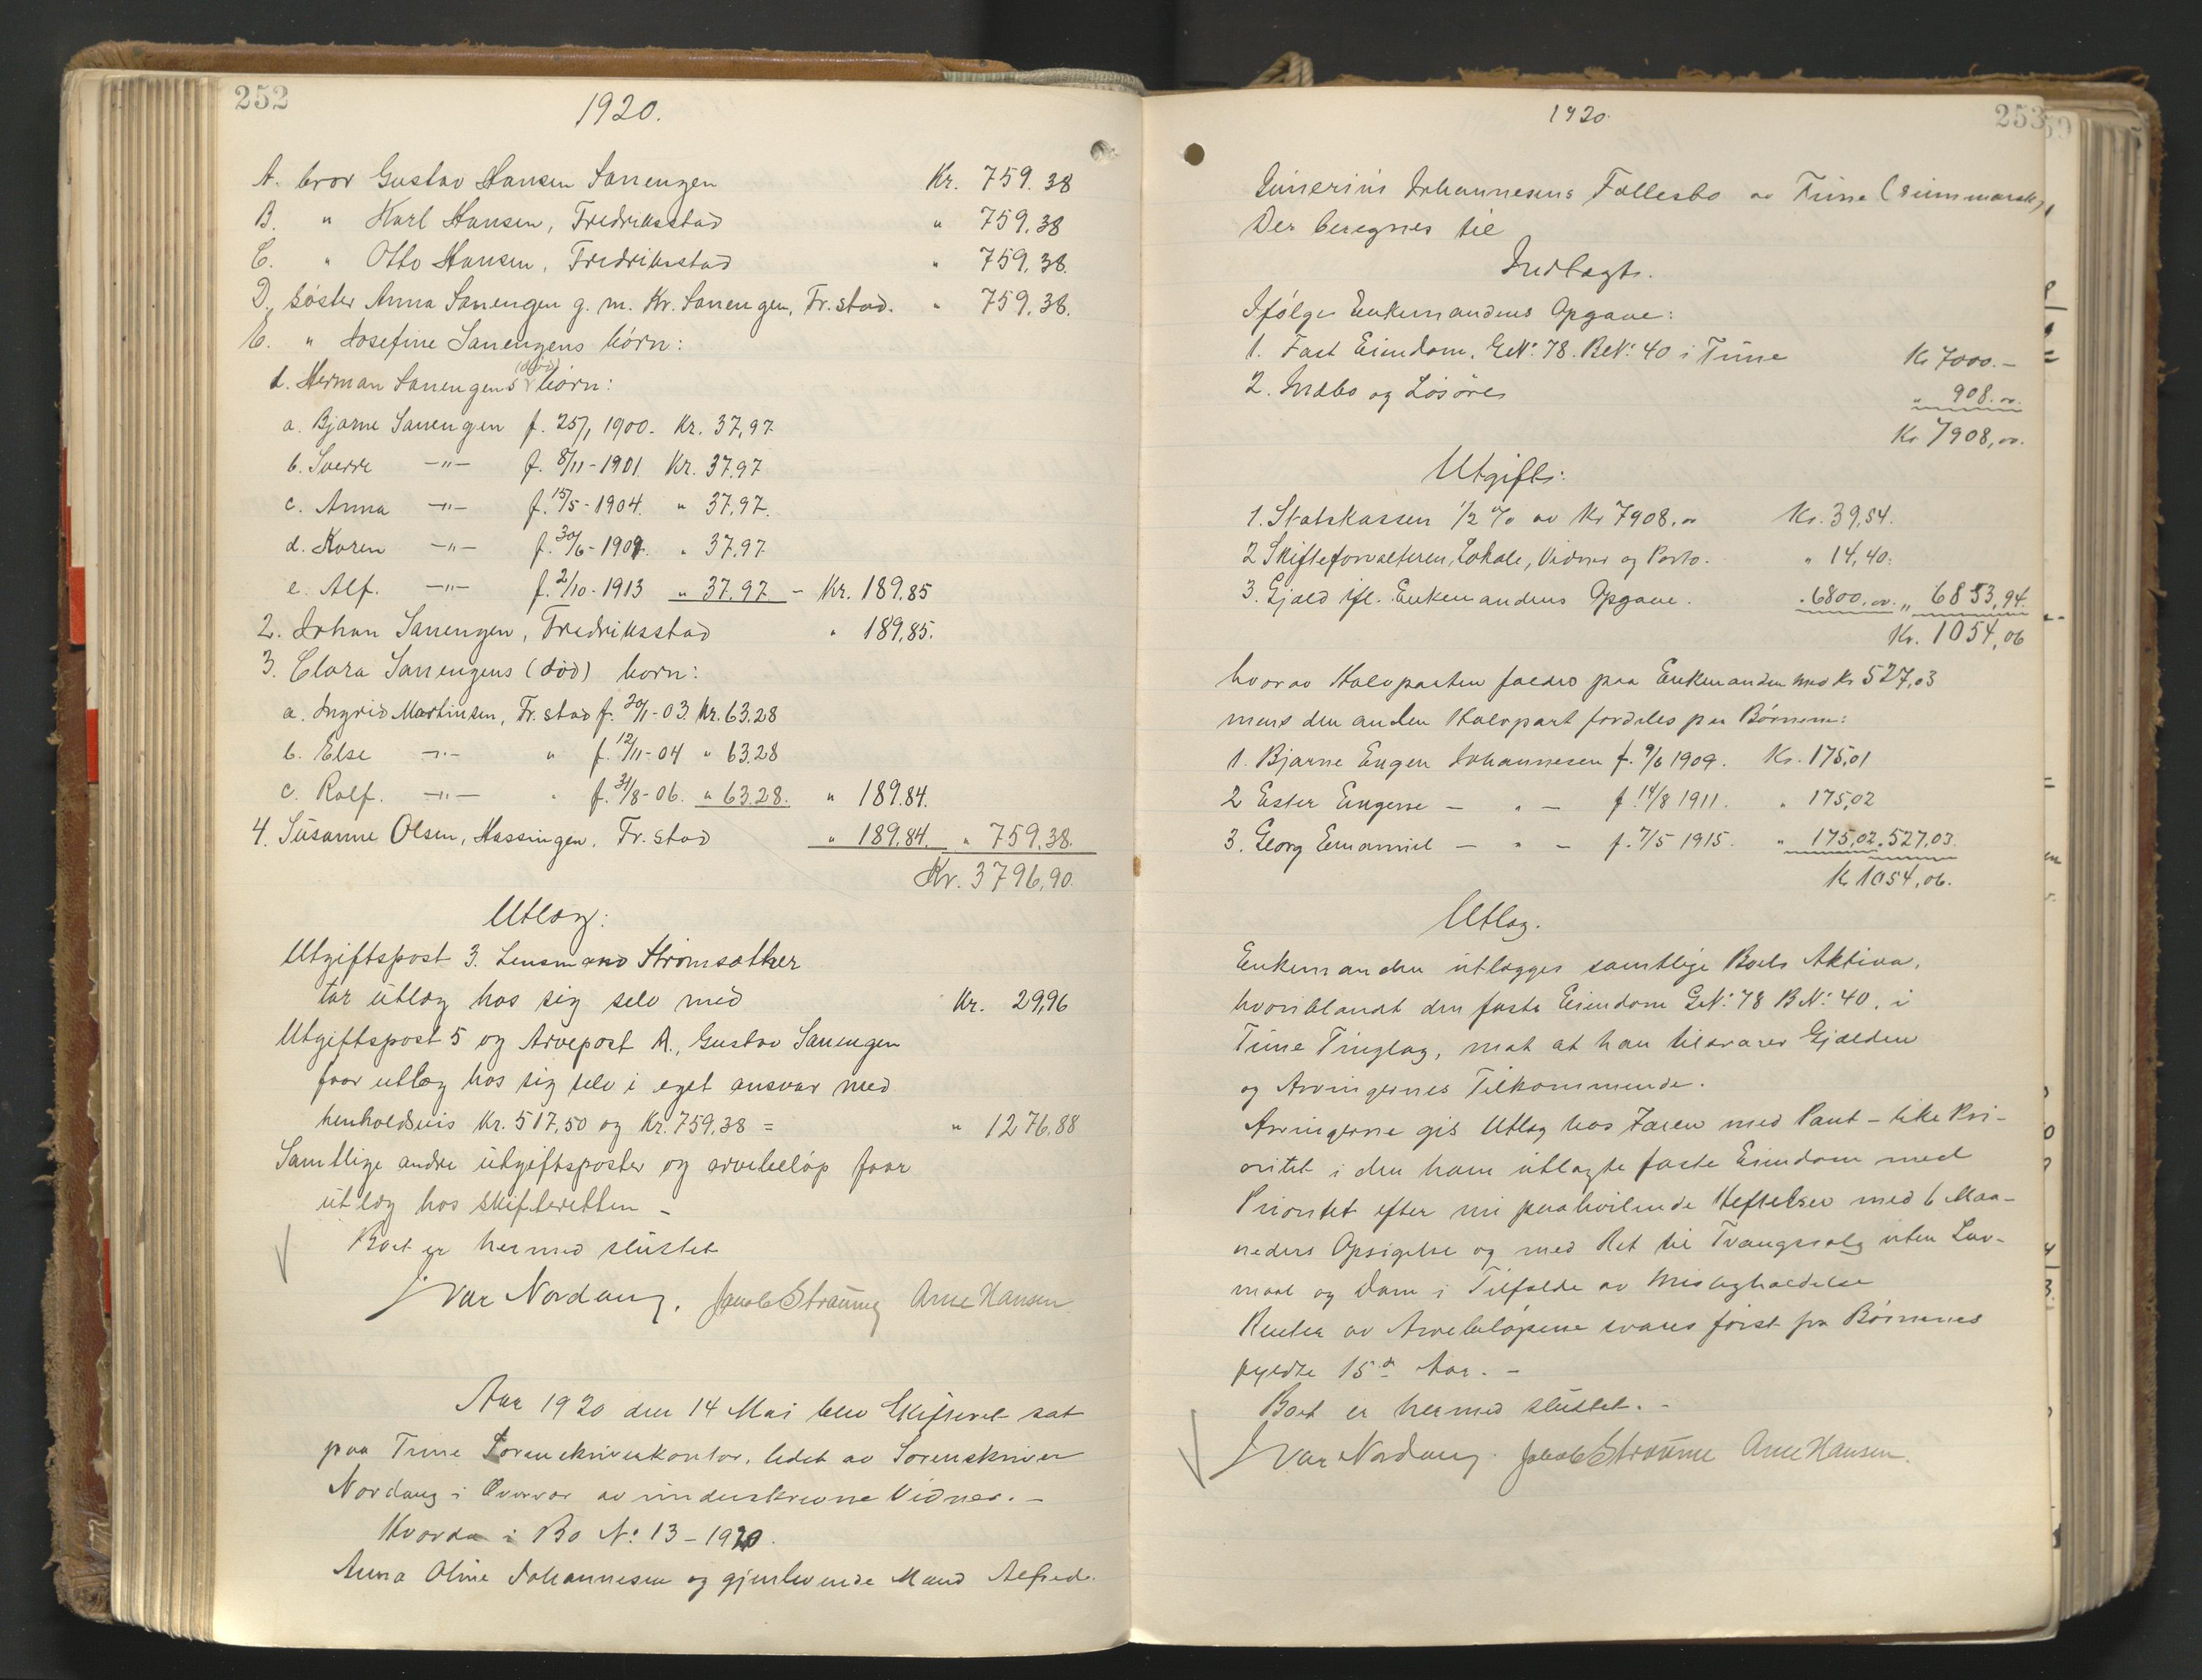 252
1920.
A. bror Gustav Hansen Sanengen Kr. 759.38
B. " Karl Hansen, Fredriksstad " 759,38
C. " Otto Hansen, Fredriksstad " 759,38.
D. søster Anna Sanengen g. m. Kr. Sanengen, Fr.stad. " 759,38.
E. " Josefine Sanengens børn:
1. Herman Sanengens (død) børn:
a. Bjarne Sanengen f. 25/1 1900. Kr. 37,97
b. Sverre -"- f. 8/11-1901 Kr. 37.97
c. Anna -"- f. 15/5-1904. " 37,97.
d. Karen -"- f. 30/6-1907. " 37,97
e. Alf. -"- f. 2/10-1913 " 37.97 - Kr. 189,85
2. Johan Sanengen, Fredriksstad " 189,85.
3. Clara Sanengens (død) børn:
a. Ingrid Martinsen, Fr. stad f. 20/1-03. Kr. 63.28
b. Else -"- " f. 12/11-04 " 63.28
c. Rolf. -"- " f. 31/8-06. " 63.28. " 189,84.
4. Susanne Olsen, Hassingen, Fr. stad " 189,84. " 759,38.
Kr. 3796,90.
Utlæg:
Utgiftspost 3. Lensmand Strømsæther
tar utlæg hos sig selv med Kr. 29,96
Utgiftspost 5 og Arvepost A., Gustav Sanengen
faar utlæg hos sig selv i eget ansvar med
henholdsvis Kr. 517,50 og Kr. 759,38 = " 1276,88
Samtlige andre utgiftsposter og arvebeløp faar
utlæg hos skifteretten -
Boet er hermed sluttet
Ivar Nordang. Jakob Straume Arne Hansen
Aar 1920 den 14 Mai blev Skifteret sat
paa Tune Sorenskriverkontor, ledet av Sorenskriver
Nordang i Overvær av underskrevne Vidner. -
Hvorda i Bo No: 13 - 1920.
Anna Oline Johannesen og gjenlevende Mand Alfred
1920
253
Johannesens Fællesbo av Tune
Der beregnes til
Indtægt.
Ifølge Enkemandens Opgave:
1. Fast Eiendom, GNo: 78. BNo: 40 i Tune Kr 7000.-
2. Indbo og Løsøre " 908.oo.
Kr 7908,oo.
Utgift:
1. Statskassen 1/2 % av Kr 7908.oo Kr. 39,54.
2 Skifteforvalteren, Lokale, Vidner og Porto. " 14,40.
3. Gjæld ifl. Enkemandens Opgave. " 6800.oo. " 6853,94.
Kr. 1054,06
hvorav Halvparten falder paa Enkemanden med Kr 527,03
mens den anden Halvpart fordeles paa Børnene:
1. Bjarne Eugen Johannesen f. 9/6 1909. Kr. 175,01
2 Ester Eugenie - " - f. 14/8 1911. " 175,02
3. Georg Emanuel - " - f. 7/5 1915. " 175,02. 527,03.
Kr 1054,06.
Utlæg.
Enkemanden utlægges samtlige Boets Aktiva,
hvoriblandt den faste Eiendom GNo: 78 BNo: 40, i
Tune Tinglag, mot at han tilsvarer Gjælden
og Arvingernes Tilkommende.
Arvingerne gis Utlæg hos Faren med Pant - like Pri-
oritet i den ham utlagte faste Eiendom med
Prioritet efter nu paahvilende Heftelser med 6 Maa-
neders Opsigelse og med Ret til Tvangssalg uten Lov-
maal og Dom i Tilfælde av Misligholdelse
Renter av Arvebeløpene svares først fra Børnenes
fyldte 15de Aar. -
Boet er hermed sluttet. -
Ivar Nordang. Jakob Straume Arne Hansen.